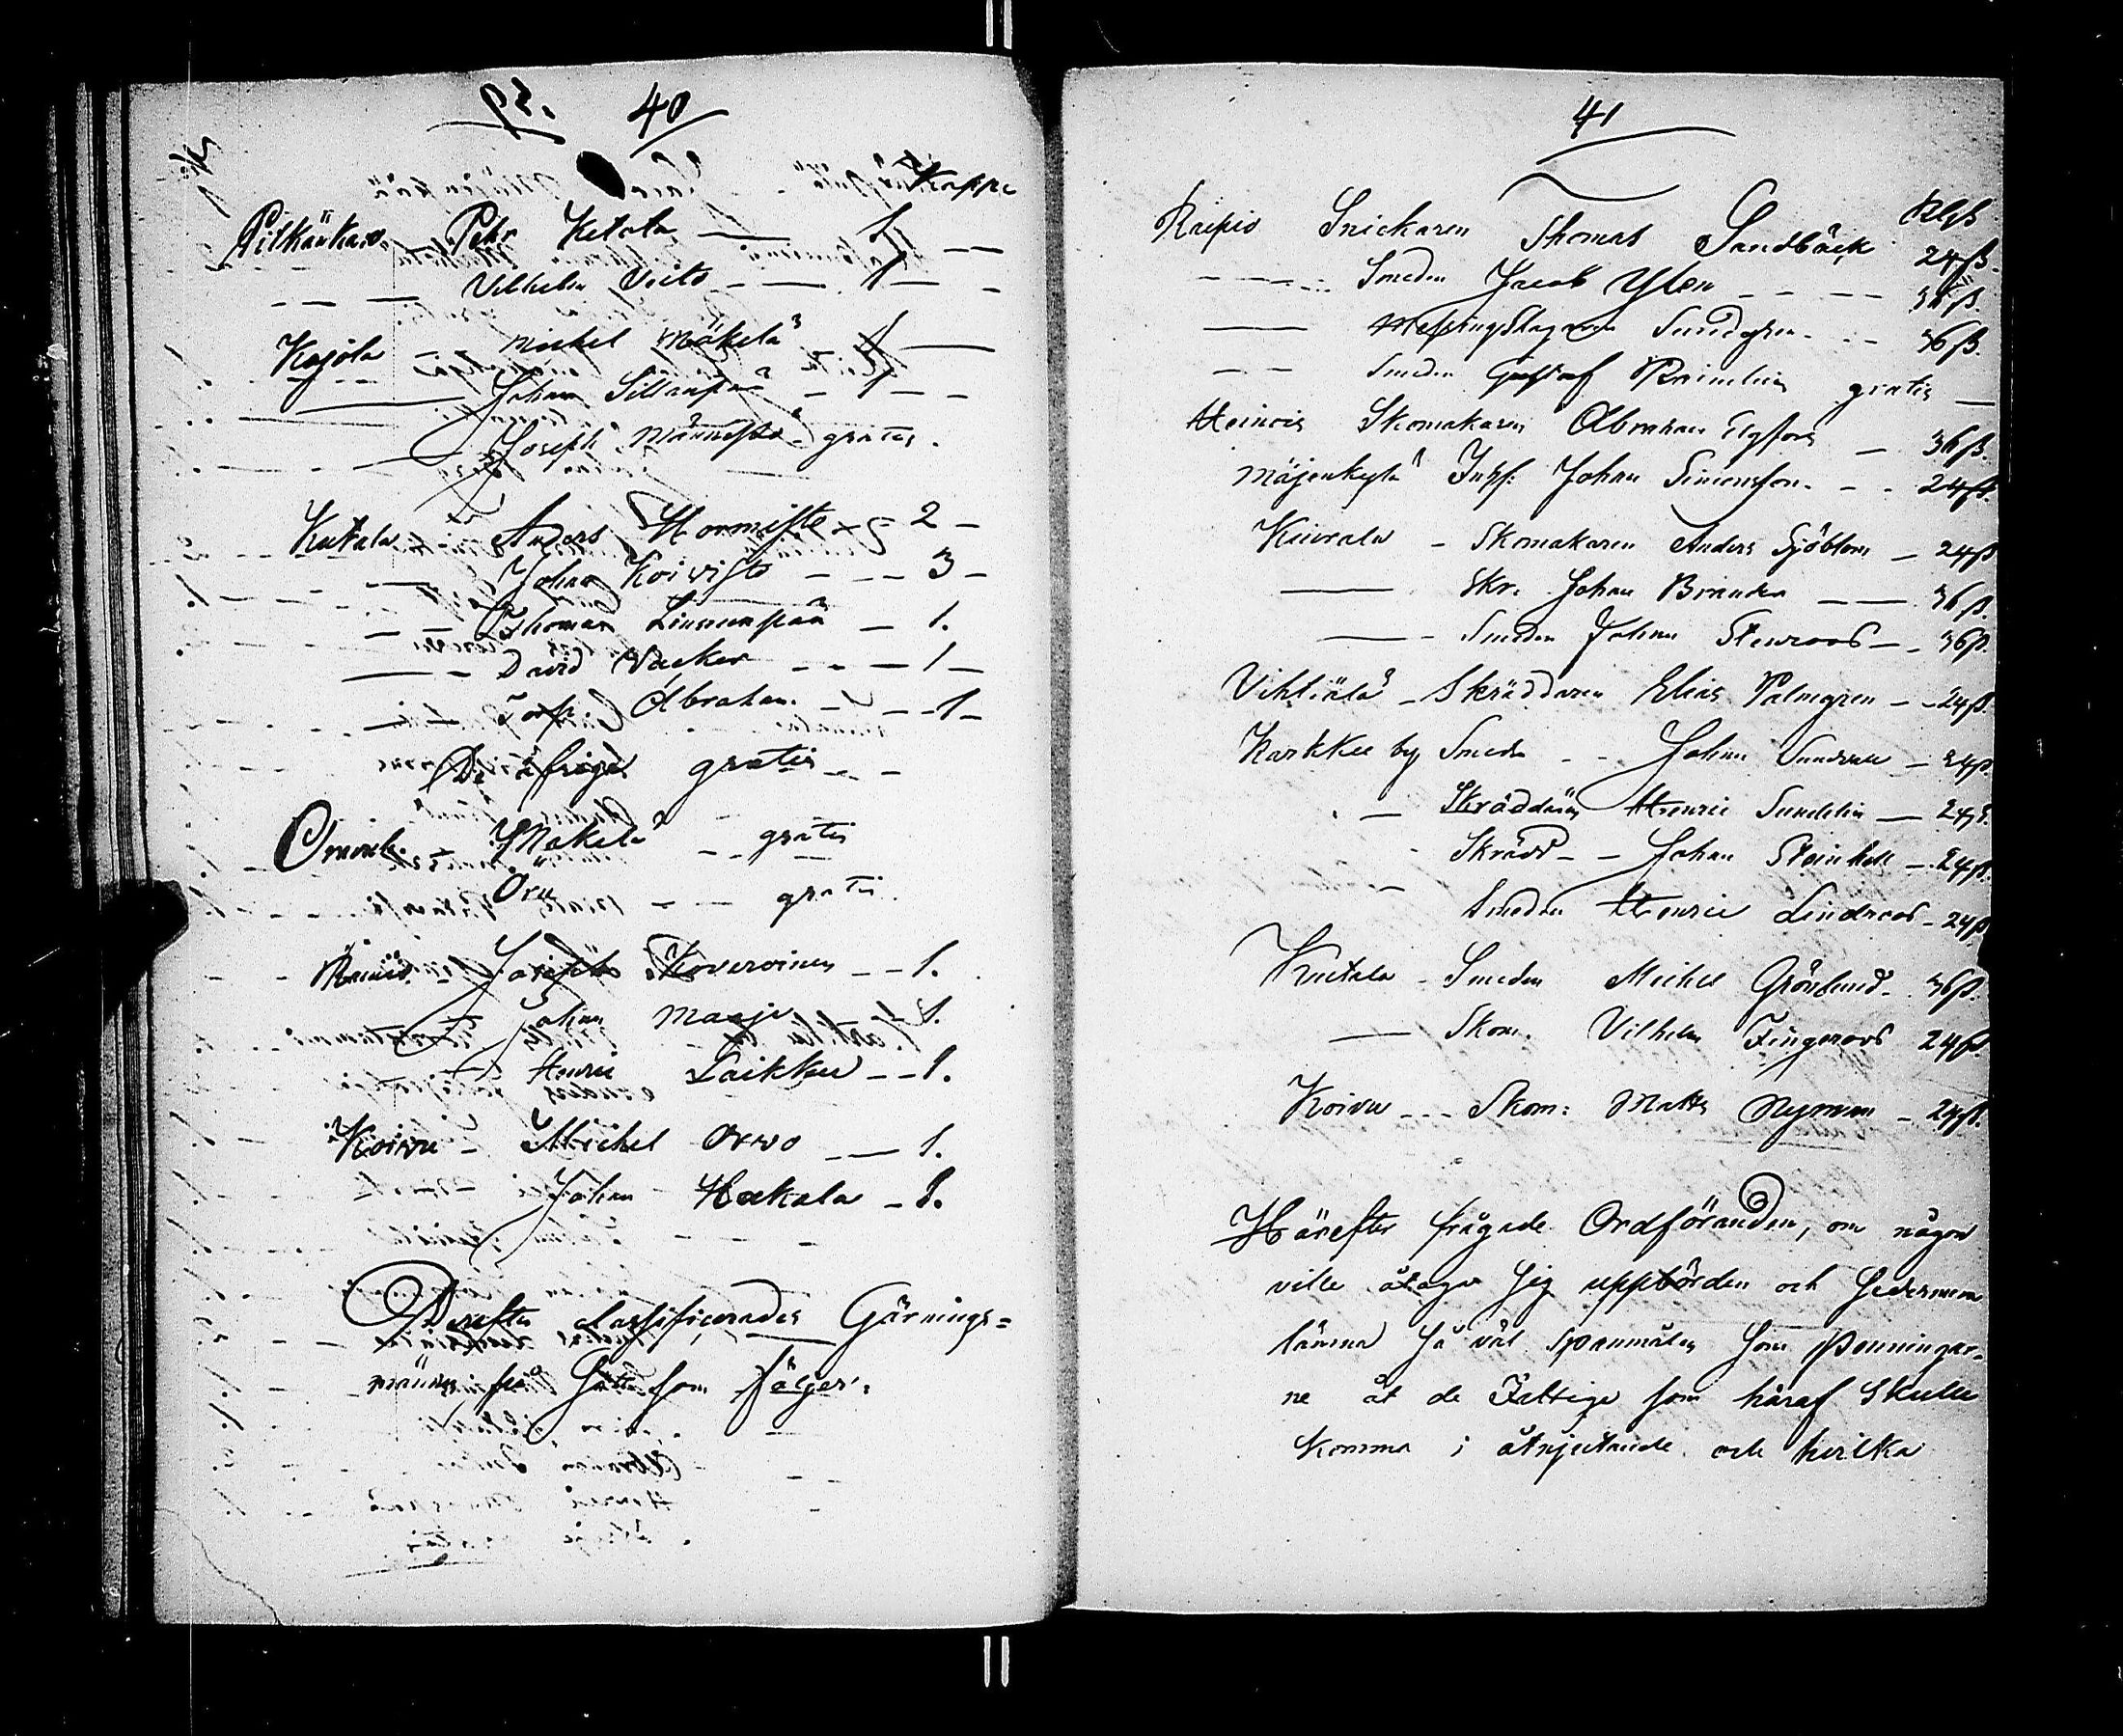 40
Kappe
Pilkänkaro Pehr Ketola — 1 —
— — — Vilhelm Veito — — 1 — —
Kojola — — Michel Mäkelä — 1 —
— Johan Sillanpää — 1 — —
— — — Joseph Männistö gratis.
Kutala Anders Hormisto — 2 —
— Johan Koivisto — — — 3 —
— — Thomas Linnunpää — 1.
— — David Wacker — — — 1 —
Torp. Abraham — — — 1 —
De öfrige gratis — —
Mäkelä — — gratis
Oru — — gratis
Joseph Koveroinen — — 1.
Johan Maaju — 1.
Henric Laikku — — 1.
Koivu — Michel Orvo — — 1.
Johan Hakala — 1.
Derefter classificerades Gärnings=
männen på sätt som följer:
41
Raipio Snickaren Thomas Sandbäck 24 ß.
— — — Smeden Jacob Ylen — — — 36 ß.
— Messingslagaren Sundgren — — 36 ß.
— — Smeden Gustaf gratis —
Heinois Skomakaren Abraham Elgfors — 36 ß.
Mäjenkylä Inhs: Johan Simonsson — — 24 ß.
Kiurala — Skomakaren Anders Sjöblom — 24 ß
— Skr. Johan Brander — — 36 ß.
— — Smeden Johan Stenroos — — 36 ß.
Vihtiälä — Skräddaren Elias Palmgren — — 24 ß.
Karkku by Smeden — — Johan Sundvall — 24 ß.
. — Skräddaren Henric Sundelin — 24 ß.
Skrädd — — Johan Steinhell — 24 ß.
— Smeden Henric Lindroos — 24 ß
Kutala — Smeden Michel Grönlund — 36 ß.
— Skom. Vilhelm Fingeroos 24 ß.
Koivu — — — Skom: Matts Nyman — 24 ß.
Härefter frågade Ordföranden, om någon
ville åtaga sig uppbörden och sedermera
lämna så väl Spannmålen som Penningar-
ne åt de Fattige som häraf Skulle
komma i åtnjutande och hvilka